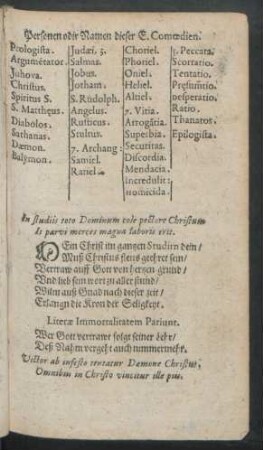 Personen oder Namen dieser E. Comœdien.
Prologista.
Argumētator.
Jehova.
Christus.
Spiritus S.
S. Mattheus.
Diabolos.
Sathanas.
Dæmon.
Balymon.
Judæi. 3.
Salmas.
Jobus.
Jotham.
S. Rudolph.
Angelus.
Rusticus.
Stultus.
7. Archang:
Samiel.
Rariel.
Choriel.
Phoriel.
Oniel.
Heliel.
Altiel.
7. Vitia.
Arrogātia.
Superbia.
Securitas.
Discordia.
Mendacia.
Incredulit:
Homicida.
5. Peccata.
Scortatio.
Tentatio.
Præsūmtio.
Desperatio.
Ratio.
Thanatos.
Epilogista.
In studiis toto Dominum cole pectore Christum
Is parvi merces magna laboris erit.
Ein Christ im gantzen Studirn dein /
Muß Christus stets geehret sein /
Vertraw auff Gott von hertzen grund /
Und lieb sein wort zu aller stund /
Wiltu auß Gnad nach dieser zeit /
Erlangn die Kron der Seligkeit.
Literæ Immortalitatem Pariunt.
Wer Gott vertrawt folgt seiner Lehr /
Deß Nahm vergeht auch nimmermehr.
Victor ab infesto tentatur Dæmone Christus,
Omnibus in Christo vincitur ille piis.